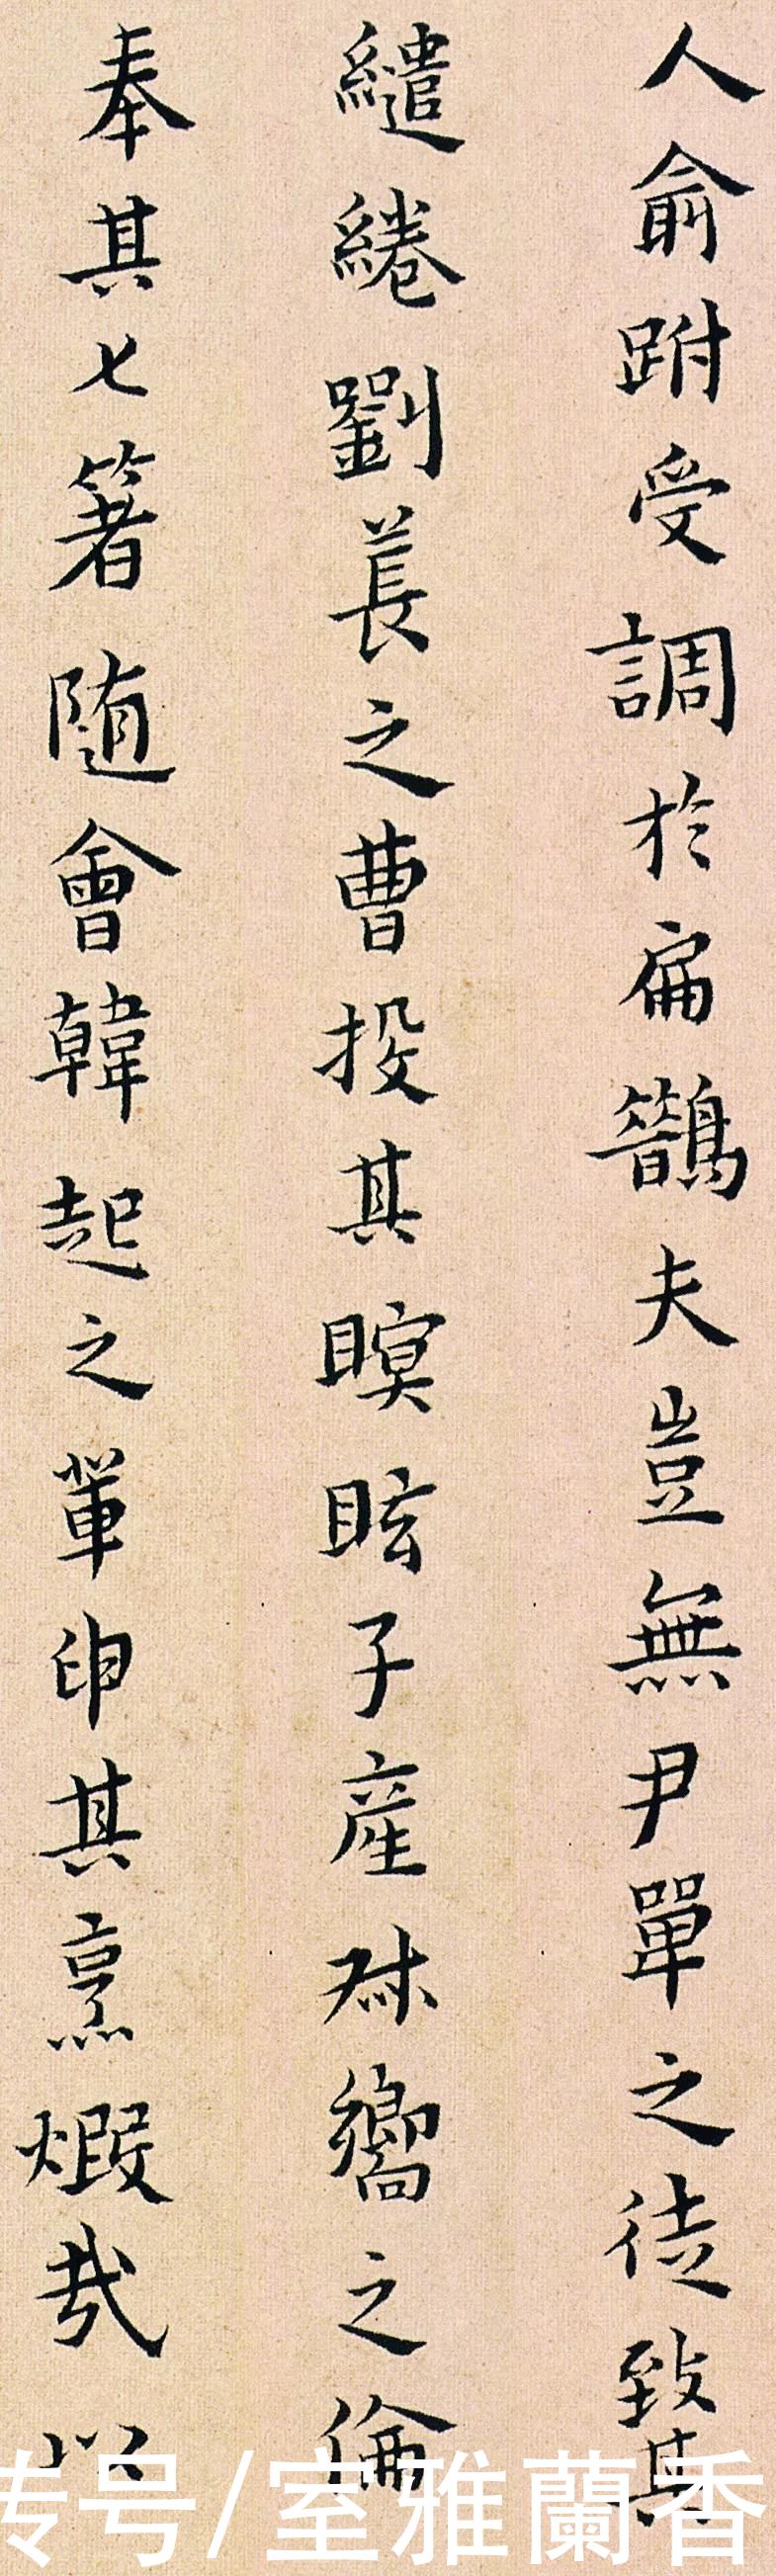 人俞跗受調於扁鵲夫豈無尹單之徒致其
繾綣劉長之曹投其瞑眩子產叔嚮之倫
奉其匕箸随會韓起之輩申其烹煆哉以
号/室雅蘭香